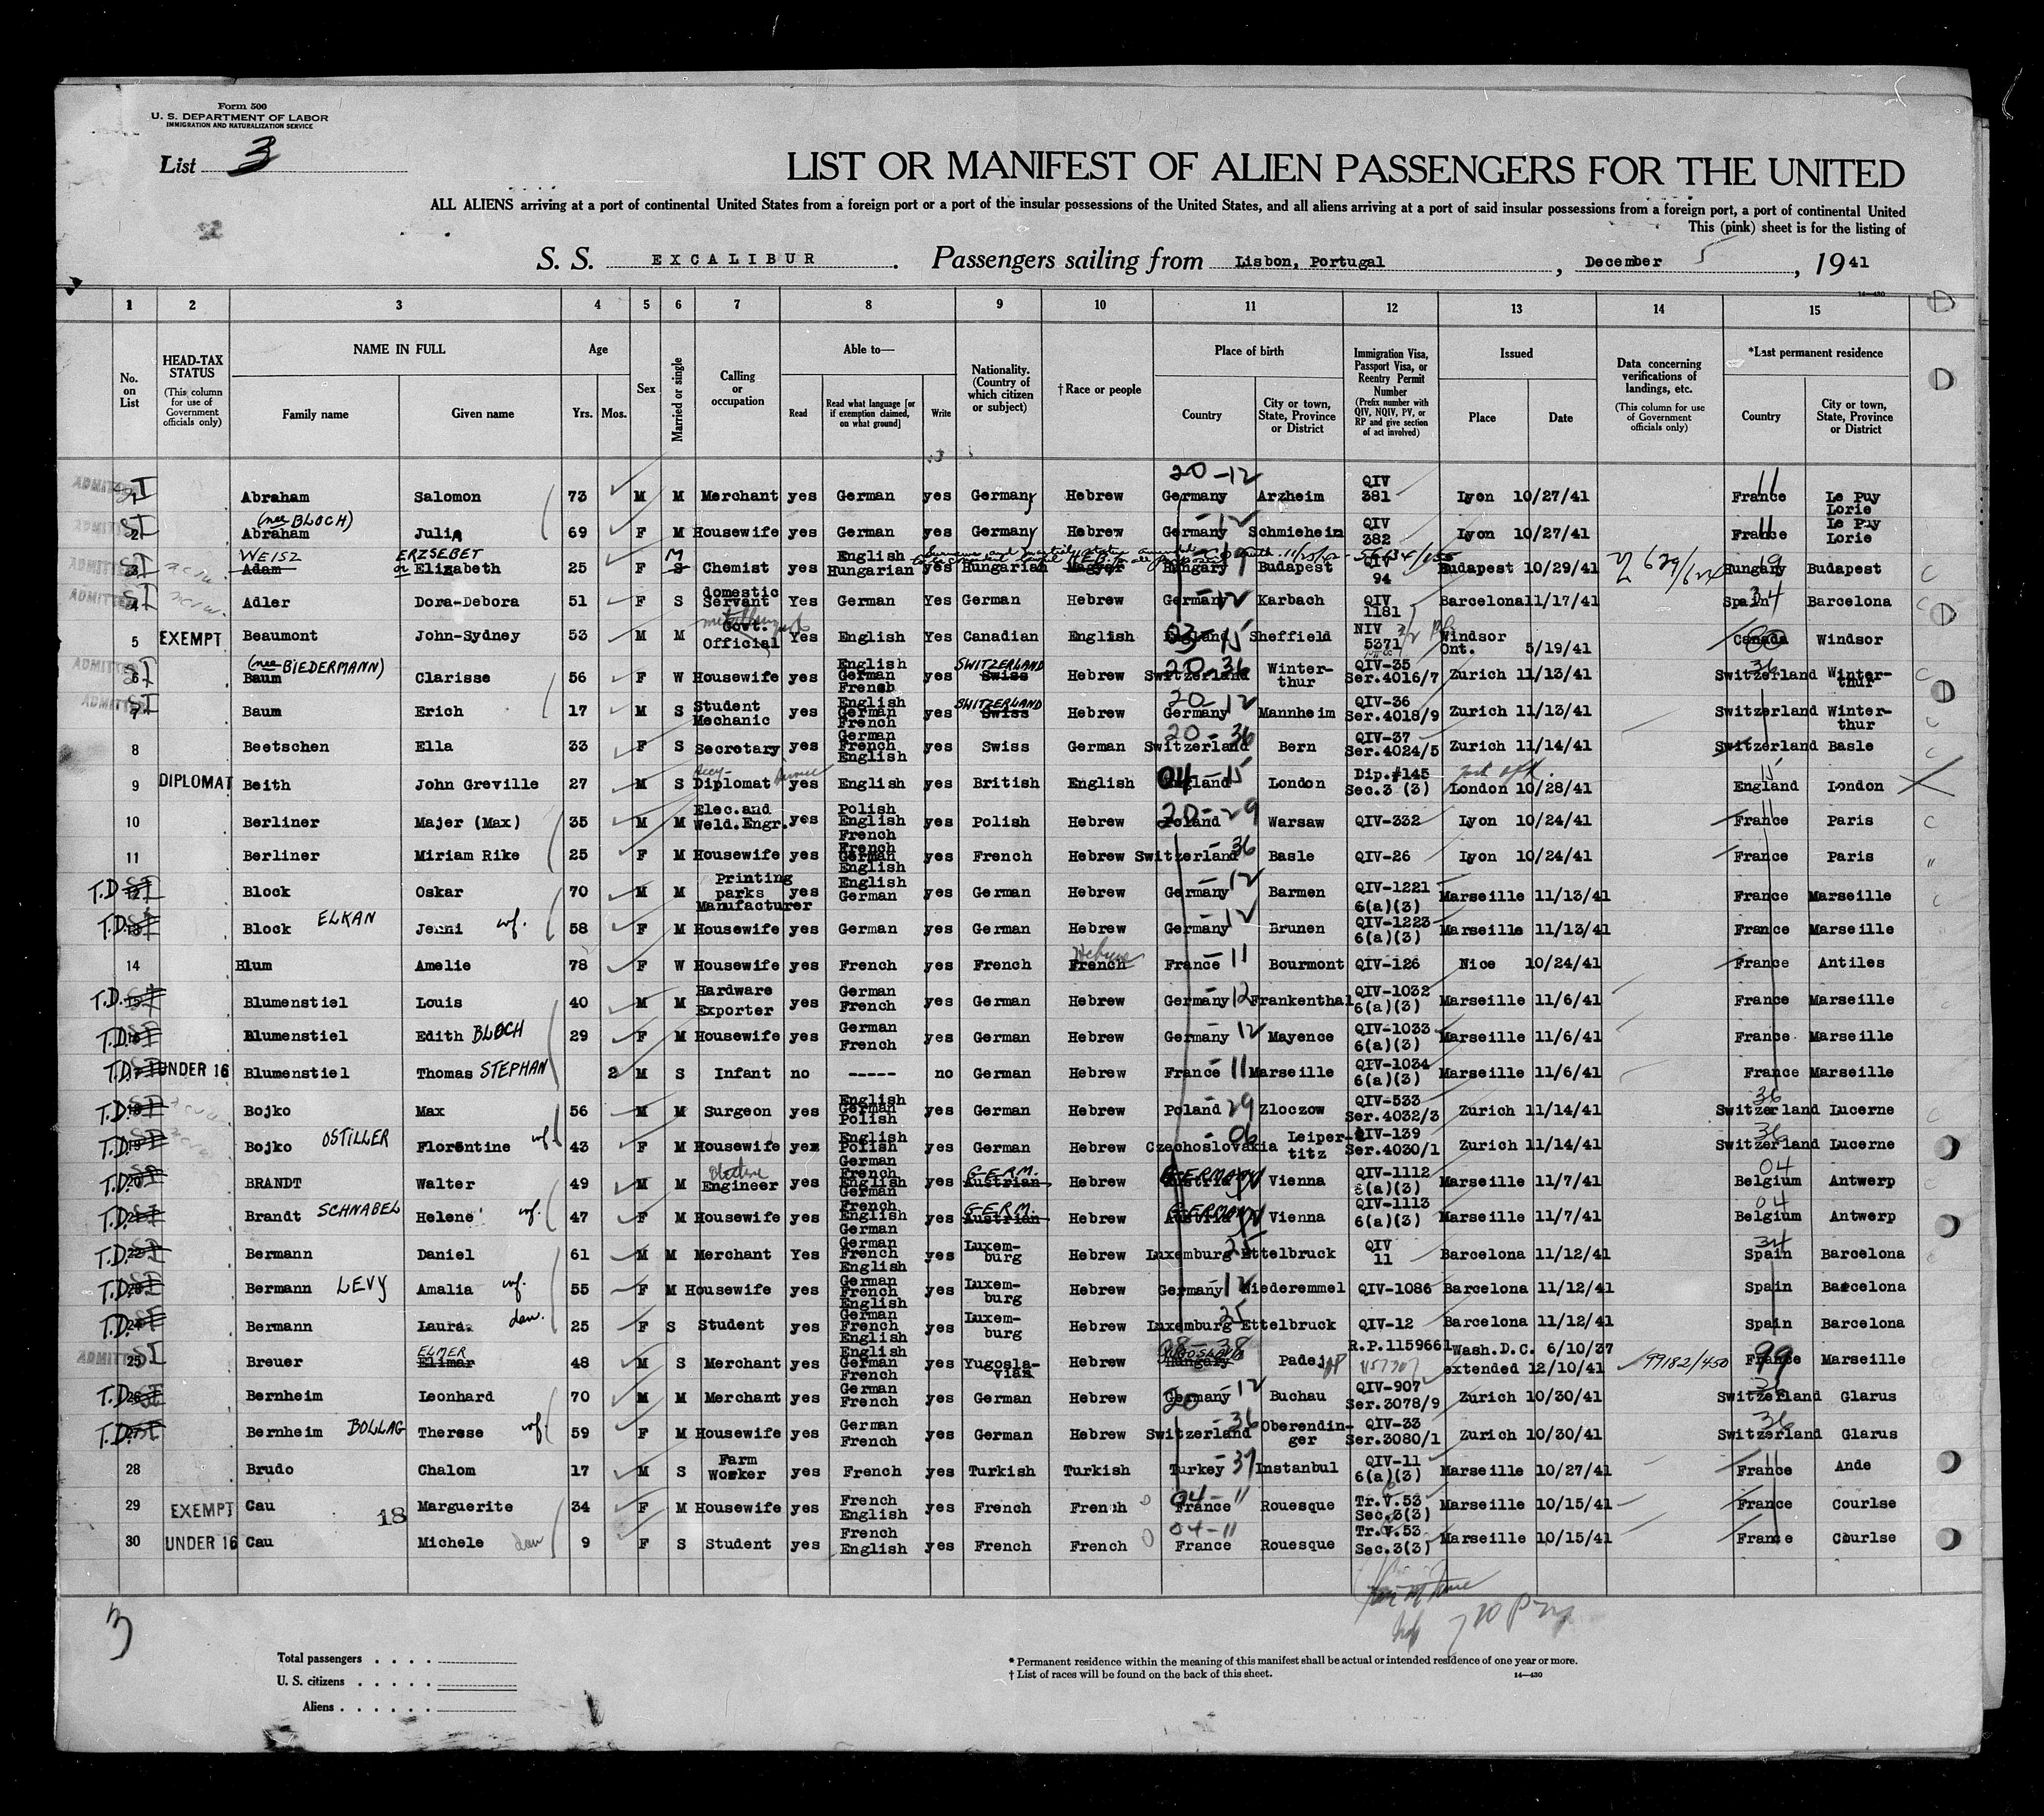 Form 500
U. S. DEPARTMENT OF LABOR
IMMIGRATION AND NATURALIZATION SERVICE
List 3
LIST OR MANIFEST OF ALIEN PASSENGERS FOR THE UNITED
ALL ALIENS arriving at a port of continental United States from a foreign port or a port of the insular possessions of the United States, and all aliens arriving at a port of said insular possessions from a foreign port, a port of continental United
This (pink) sheet is for the listing of
S. S. EXCALIBUR. Passengers sailing from Lisbon, Portugal, December 5, 19 41
14—430
1 2 3 4 5 6 7 8 9 10 11 12 13 14 15
No. on List
HEAD-TAX STATUS (This column for use of Government officials only)
NAME IN FULL Family name Given name
Age Yrs. Mos.
Sex
Married or single
Calling or occupation
Able to— Read Read what language [or if exemption claimed, on what ground] Write
Nationality. (Country of which citizen or subject)
† Race or people
Place of birth Country City or town, State, Province or District
Immigration Visa, Passport Visa, or Reentry Permit Number (Prefix number with QIV, NQIV, PV, or RP and give section of act involved)
Issued Place Date
Data concerning verifications of landings, etc. (This column for use of Government officials only)
*Last permanent residence Country City or town, State, Province or District
ADMITTED SI 1 Abraham Salomon 73 M M Merchant yes German yes Germany Hebrew 20-12 Germany Arzheim QIV 381 Lyon 10/27/41 11 France Le Puy Lorie
SI 2 (nee BLOCH) Abraham Julia 69 F M Housewife yes German yes Germany Hebrew Germany -12 Schmieheim QIV 382 Lyon 10/27/41 11 France Le Puy Lorie
ADMITTED SI 3 WEISZ Adam ERZSEBET or Elizabeth 25 F M S Chemist yes English Hungarian yes Hungarian Magyar Hungary 19 Budapest QIV 94 Budapest 10/29/41 Hungary 19 Budapest
ADMITTED SI 4 Adler Dora-Debora 51 F S domestic Servant Yes German Yes German Hebrew Germany 12 Karbach QIV 1181 Barcelona 11/17/41 Spain 34 Barcelona
5 EXEMPT Beaumont John-Sydney 53 M M Govt. Official Yes English Yes Canadian English England 03-15 Sheffield NIV 5371 Windsor Ont. 5/19/41 Canada Windsor
ADMITTED SI 6 (nee BIEDERMANN) Baum Clarisse 56 F W Housewife yes English German French yes SWITZERLAND Swiss Hebrew 20-36 Switzerland Winterthur QIV-35 Ser.4016/7 Zurich 11/13/41 36 Switzerland Winterthur
ADMITTED SI 7 Baum Erich 17 M S Student Mechanic yes English German French yes SWITZERLAND Swiss Hebrew 20-12 Germany Mannheim QIV-36 Ser.4018/9 Zurich 11/13/41 Switzerland Winterthur
8 Beetschen Ella 33 F S Secretary yes German French English yes Swiss German 20-36 Switzerland Bern QIV-37 Ser.4024/5 Zurich 11/14/41 Switzerland Basle
9 DIPLOMAT Beith John Greville 27 M S Diplomat yes English yes British English 04-15 England London Dip.#145 Sec.3 (3) London 10/28/41 15 England London
10 Berliner Majer (Max) 35 M M Elec.and Weld.Engr. yes Polish English French yes Polish Hebrew 20-29 Poland Warsaw QIV-332 Lyon 10/24/41 11 France Paris
11 Berliner Miriam Rike 25 F M Housewife yes French German English yes French Hebrew Switzerland -36 Basle QIV-26 Lyon 10/24/41 France Paris
T.D. 12 Block Oskar 70 M M Printing parks Manufacturer yes English German yes German Hebrew Germany -12 Barmen QIV-1221 6(a)(3) Marseille 11/13/41 France Marseille
T.D. 13 Block ELKAN Jenni wf. 58 F M Housewife yes German yes German Hebrew Germany -12 Brunen QIV-1223 6(a)(3) Marseille 11/13/41 France Marseille
14 Blum Amelie 78 F W Housewife yes French yes French Hebrew French France -11 Bourmont QIV-126 Nice 10/24/41 France Antiles
T.D. 15 Blumenstiel Louis 40 M M Hardware Exporter yes German French yes German Hebrew Germany -12 Frankenthal QIV-1032 6(a)(3) Marseille 11/6/41 France Marseille
T.D. 16 Blumenstiel Edith BLOCH 29 F M Housewife yes German French yes German Hebrew Germany -12 Mayence QIV-1033 6(a)(3) Marseille 11/6/41 France Marseille
T.D. 17 UNDER 16 Blumenstiel Thomas STEPHAN 2 M S Infant no ----- no German Hebrew France -11 Marseille QIV-1034 6(a)(3) Marseille 11/6/41 France Marseille
T.D. 18 Bojko Max 56 M M Surgeon yes English German Polish yes German Hebrew Poland -29 Zloczow QIV-533 Ser.4032/3 Zurich 11/14/41 36 Switzerland Lucerne
T.D. 19 Bojko OSTILLER Florentine wf. 43 F M Housewife yes English Polish German yes German Hebrew Czechoslovakia -06 Leipertitz QIV-139 Ser.4030/1 Zurich 11/14/41 36 Switzerland Lucerne
T.D. 20 BRANDT Walter 49 M M Engineer yes French English German yes GERM. Austrian Hebrew GERMANY Austria Vienna QIV-1112 6(a)(3) Marseille 11/7/41 04 Belgium Antwerp
T.D. 21 Brandt SCHNABEL Helene wf. 47 F M Housewife yes French English German yes GERM. Austrian Hebrew GERMANY Austria Vienna QIV-1113 6(a)(3) Marseille 11/7/41 04 Belgium Antwerp
T.D. 22 Bermann Daniel 61 M M Merchant Yes German French English yes Luxemburg Hebrew Luxemburg 25 Ettelbruck QIV 11 Barcelona 11/12/41 34 Spain Barcelona
T.D. 23 Bermann LEVY Amalia wf. 55 F M Housewife yes German French English yes Luxemburg Hebrew Germany -12 Niederemmel QIV-1086 Barcelona 11/12/41 Spain Barcelona
T.D. 24 Bermann Laura daw. 25 F S Student yes German French English yes Luxemburg Hebrew Luxemburg 25 Ettelbruck QIV-12 Barcelona 11/12/41 Spain Barcelona
ADMITTED SI 25 Breuer ELMER Elimar 48 M S Merchant yes English German French yes Yugoslavian Hebrew 08-38 YUGOSLAVIA Hungary Padej R.P.1159661 Wash.D.C. 6/10/37 extended 12/10/41 99182/450 99 France Marseille
T.D. 26 Bernheim Leonhard 70 M M Merchant yes German French yes German Hebrew 20-12 Germany Buchau QIV-907 Ser.3078/9 Zurich 10/30/41 36 Switzerland Glarus
T.D. 27 Bernheim BOLLAG Therese wf. 59 F M Housewife yes German French yes German Hebrew Switzerland -36 Oberendinger QIV-33 Ser.3080/1 Zurich 10/30/41 36 Switzerland Glarus
28 Brudo Chalom 17 M S Farm Worker yes French yes Turkish Turkish Turkey -37 Instanbul QIV-11 6(a)(3) Marseille 10/27/41 11 France Ande
29 EXEMPT Cau 18 Marguerite 34 F M Housewife yes French English yes French French 04-11 France Rouesque Tr.V.53 Sec.3(3) Marseille 10/15/41 France Courlse
30 UNDER 16 Cau Michele daw 9 F S Student yes French English yes French French 04-11 France Rouesque Tr.V.53 Sec.3(3) Marseille 10/15/41 France Courlse
3
Total passengers . . . .
U. S. citizens . . . . .
Aliens . . . . . .
* Permanent residence within the meaning of this manifest shall be actual or intended residence of one year or more.
† List of races will be found on the back of this sheet.
14—430